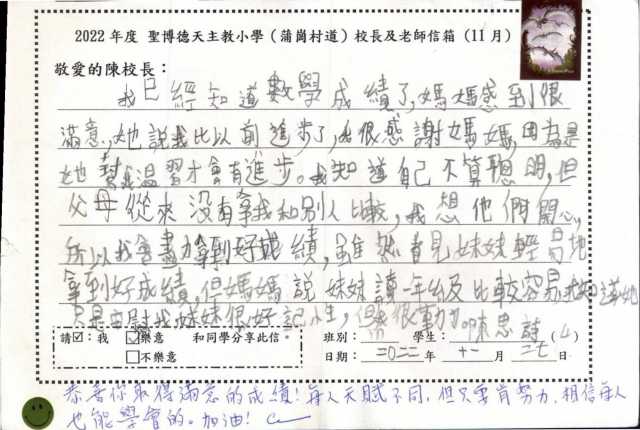 2022年度 聖博德天主教小學(蒲崗村道)校長及老師信箱(11月)
敬愛的陳校長:
我已經知道數學成績了,媽媽感到很
滿意,她說我比以前進步了,我很感謝媽媽,因為是
她幫我溫習才會有進步。我知道自己不算聰明,但
父母從來沒有拿我和別人比較,我想他們開心,
所以我會盡力拿到好成績,雖然看見妹妹輕易地
拿到好成績,但媽媽說妹妹讀一年級比較容易我知道她
只是 我妹妹很好記性,但 很勤力。陳思詩(4)
請☑:我 ☑樂意 和同學分享此信。
□不樂意
班別: 學生:
日期:二0二二年十一月二七日
恭喜你取得滿意的成績!每人天賦不同,但只要肯努力,相信每人
也能學會的。加油!